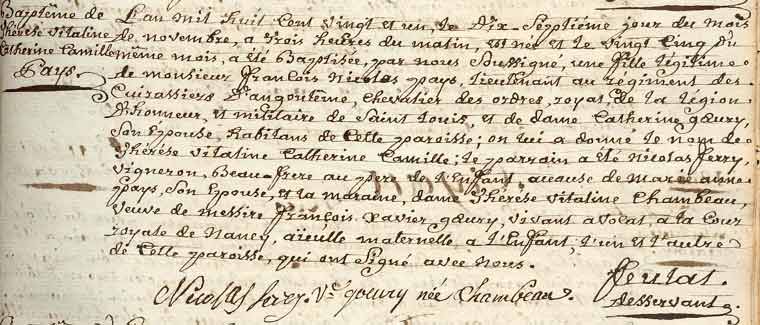 Baptême de
Thérèse Vitaline
Catherine Camille
Pays.
L'an mil huit cent vingt et un, le Dix-Septième jour du mois
de novembre, a trois heures du matin, est née et le vingt Cinq du
même mois, a été Baptisée, par nous Soussigné, une fille légitime
de monsieur François Nicolas pays, Lieutenant au régiment des
Cuirassiers D'angoulème, chevalier des ordres, royal, de la Légion
D'honneur, et militaire de Saint Louis, et de dame Catherine gœury,
Son Epouse, habitans de Cette paroisse; on lui a donné le nom de
Thérèse Vitaline Catherine Camille; le parrain a été Nicolas ferry,
vigneron, Beau-frere au pere de l'Enfant, acause de Marie anne
pays, Son Epouse, et la maraine, dame Thérèse Vitaline Chambeau,
Veuve de messire françois Xavier gœury, vivant avocat a la Cour
royale de Nancy, aïeulle maternelle, a l'Enfant; l'un et l'autre
de Cette paroisse, qui ont Signé avec Nous.
Nicolas ferry. Ve goeury née Chambeau.
feutat.
desservant.